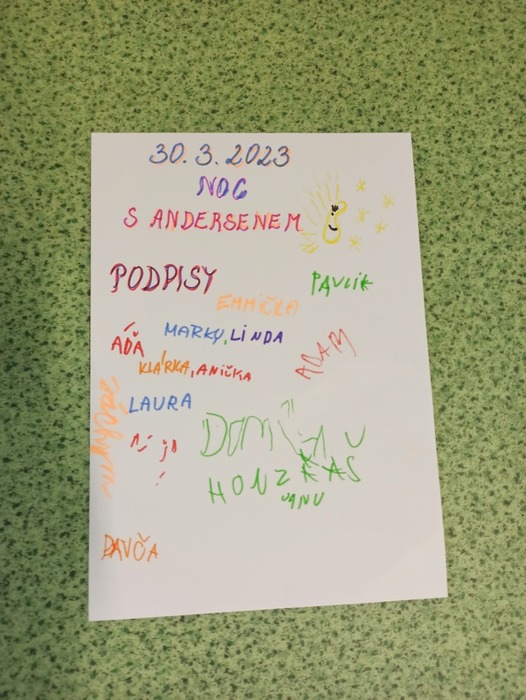 30. 3. 2023
NOC
S ANDERSENEM
PODPISY
PAVLIK
EMMIČKA
MARKY, LINDA
AĎA
ADAM
KLÁRKA, ANIČKA
LAURA
HONZ
DAVČA